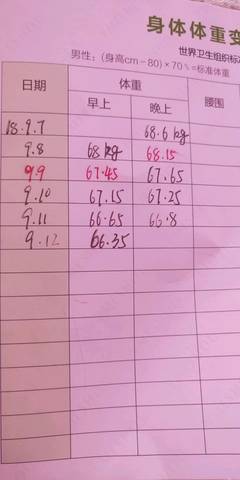 身体体重变
世界卫生组织标准
男性：(身高cm-80)×70%=标准体重
日期 体重 腰围
早上 晚上
18.9.7 68.6kg
9.8 68kg 68.15
9.9 67.45 67.65
9.10 67.15 67.25
9.11 66.65 66.8
9.12 66.35